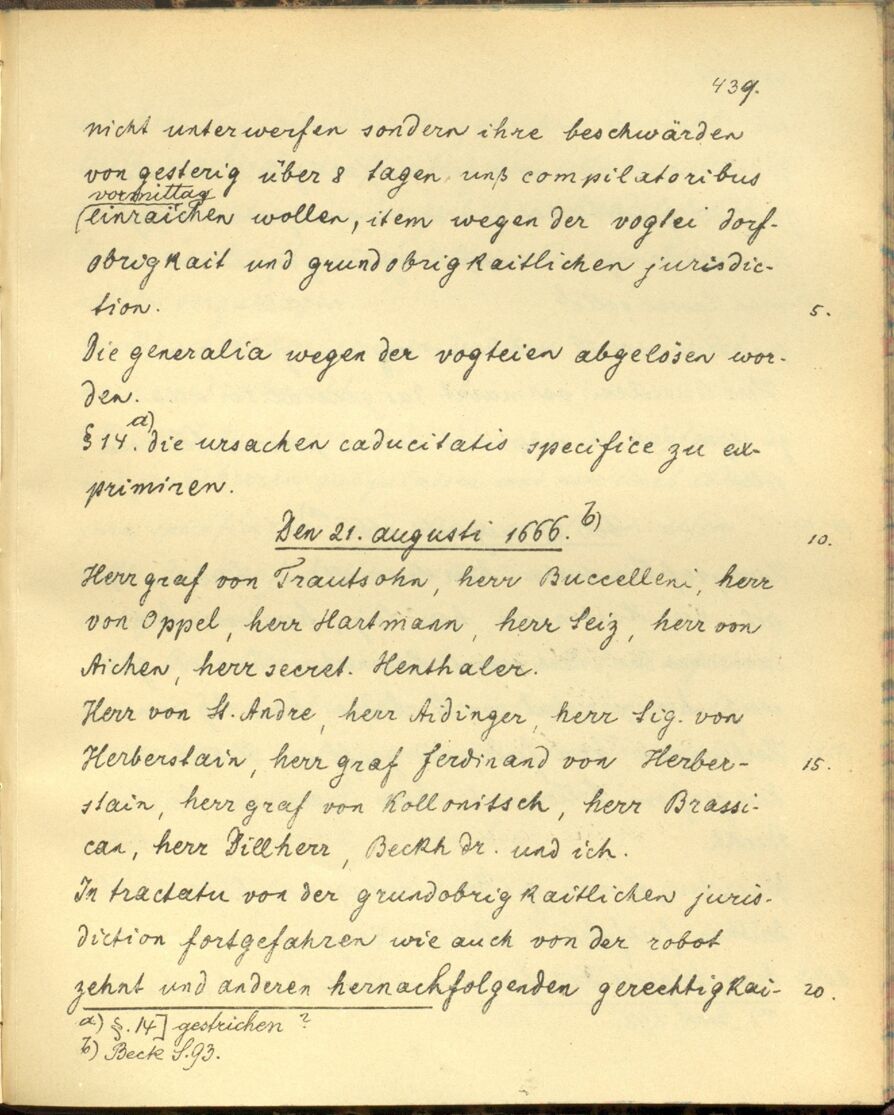 439.
nicht unterwerfen sondern ihre beschwärden
von gesterig über 8 tagen unß compilatoribus
vormittag
(einraichen wollen, item wegen der vogtei dorf-
obrigkait und grundobrigkaitlichen jurisdic-
tion. 5.
Die generalia wegen der vogteien abgelösen wor-
den.
§ 14. a) die ursachen caducitatis specifice zu ex-
primiren.
Den 21. augusti 1666. b) 10.
Herr graf von Trautsohn, herr Buccelleni, herr
von Oppel, herr Hartmann, herr Seiz, herr von
Aichen, herr secret. Henthaler.
Herr von St. Andre, herr Aidinger, herr Sig. von
Herberstain, herr graf Ferdinand von Herber- 15.
stain, herr graf von Kollonitsch, herr Brassi-
can, herr Dillherr, Beckh dr. und ich.
In tractatu von der grundobrigkaitlichen juris-
diction fortgefahren wie auch von der robot
zehnt und anderen hernachfolgenden gerechtigkai- 20.
a) §. 14] gestrichen ?
b) Beck S. 93.